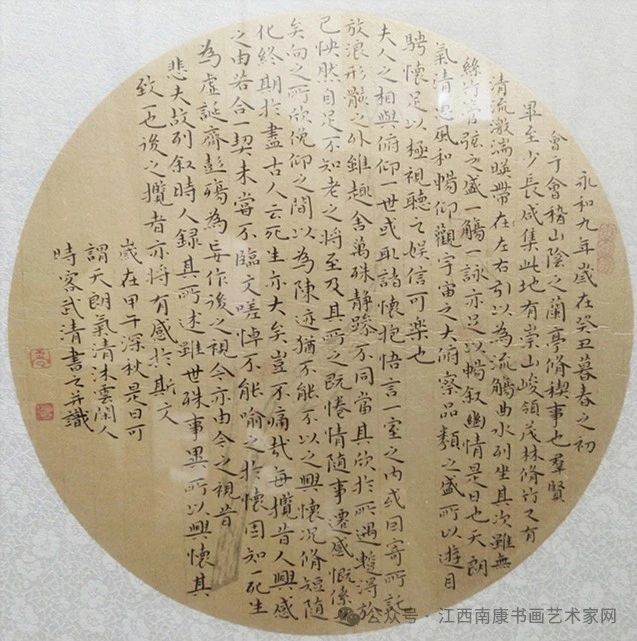 永和九年歲在癸丑暮春之初
會于會稽山陰之蘭亭脩禊事也羣賢
畢至少長咸集此地有崇山峻領茂林脩竹又有
清流激湍暎帶在左右引以為流觴曲水列坐其次雖無
絲竹管弦之盛一觴一詠亦足以暢叙幽情是日也天朗
氣清惠風和暢仰觀宇宙之大俯察品類之盛所以遊目
騁懷足以極視聽之娛信可樂也
夫人之相與俯仰一世或取諸懷抱悟言一室之內或因寄所託
放浪形骸之外雖趣舍萬殊静躁不同當其欣於所遇暫得於
己怏然自足不知老之將至及其所之既惓情隨事遷感慨係之
矣向之所欣俛仰之間以為陳迹猶不能不以之興懷況脩短隨
化終期於盡古人云死生亦大矣豈不痛哉每攬昔人興感
之由若合一契未嘗不臨文嗟悼不能喻之於懷固知一死生
為虛誕齊彭殤為妄作後之視今亦由今之視昔
悲夫故列叙時人録其所述雖世殊事異所以興懷其
致一也後之攬者亦將有感於斯文
歲在甲午深秋是日可
謂天朗氣清沐雲閑人
時客武清書之并識
公众号 · 江西南康书画艺术家网